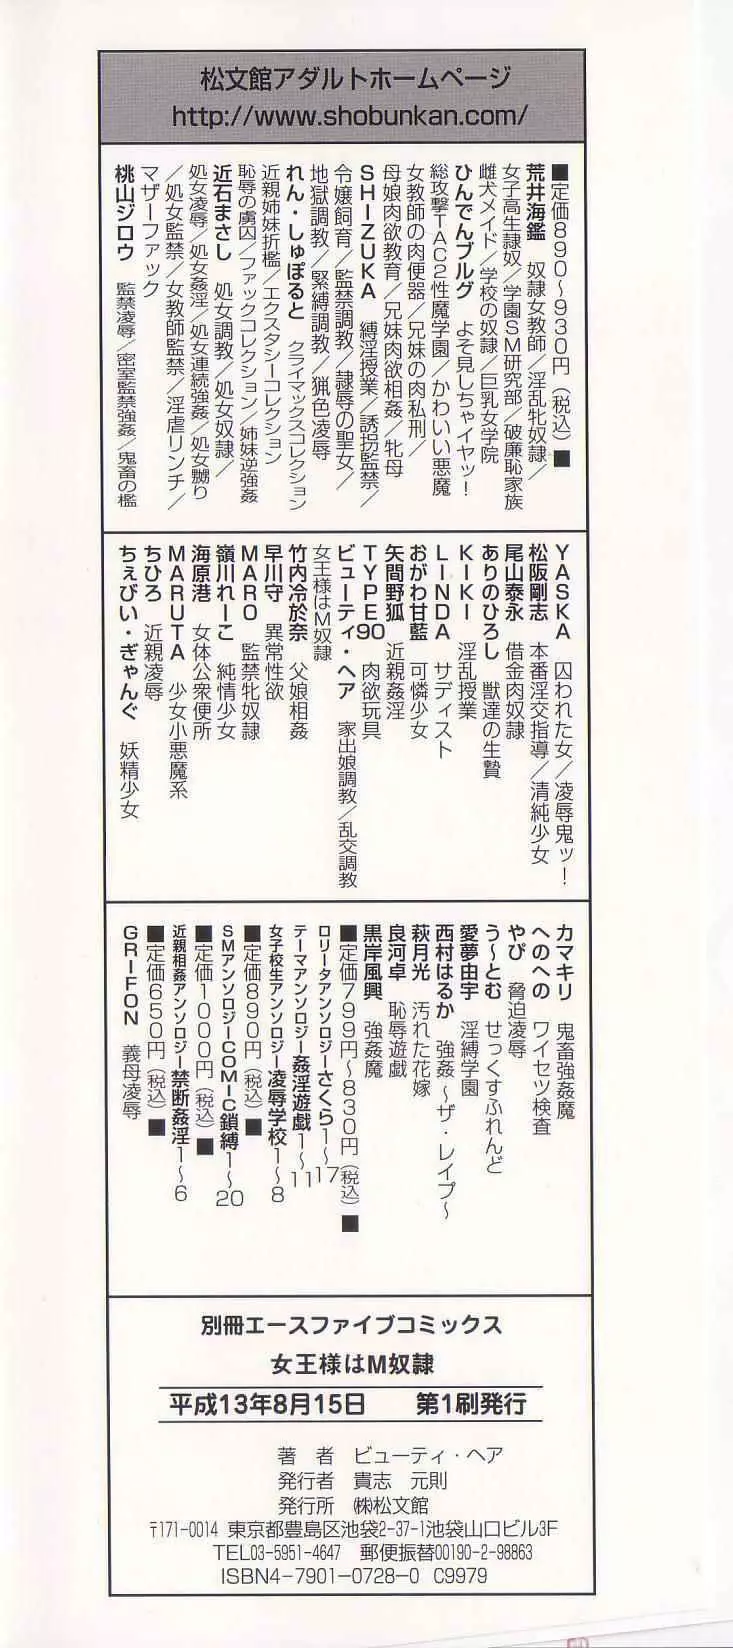 松文館アダルトホームページ
http://www.shobunkan.com/
■定価890～930円(税込)■
荒井海鑑 奴隷女教師／淫乱牝奴隷／
女子高生隷奴／学園SM研究部／破廉恥家族
雌犬メイド／学校の奴隷／巨乳女学院
ひんでんブルグ よそ見しちゃイヤッ!
総攻撃TAC2性魔学園／かわいい悪魔
女教師の肉便器／兄妹の肉私刑／
母娘肉欲教育／兄妹肉欲相姦／牝母
SHIZUKA 縛淫授業／誘拐監禁／
令嬢飼育／監禁調教／隷辱の聖女／
地獄調教／緊縛調教／猟色凌辱
れん・しゅぽると クライマックスコレクション
近親姉妹折檻／エクスタシーコレクション
恥辱の虜囚／ファックコレクション／姉妹逆強姦
近石まさし 処女調教／処女奴隷／
処女凌辱／処女姦淫／処女連続強姦／処女嬲り
／処女監禁／女教師監禁／淫虐リンチ／
マザーファック
桃山ジロウ 監禁凌辱／密室監禁強姦／鬼畜の檻
YASKA 囚われた女／凌辱鬼ッ!
松阪剛志 本番淫交指導／清純少女
尾山泰永 借金肉奴隷
ありのひろし 獣達の生贄
KIKI 淫乱授業
LINDA サディスト
おがわ甘藍 可憐少女
矢間野狐 近親姦淫
TYPE90 肉欲玩具
ビューティ・ヘア 家出娘調教／乱交調教
女王様はM奴隷
竹内冷於奈 父娘相姦
早川守 異常性欲
MARO 監禁牝奴隷
嶺川れーこ 純情少女
海原港 女体公衆便所
MARUTA 少女小悪魔系
ちひろ 近親凌辱
ちぇびい・ぎゃんぐ 妖精少女
カマキリ 鬼畜強姦魔
へのへの ワイセツ検査
やぴ 脅迫凌辱
う～とむ せっくすふれんど
愛夢由宇 淫縛学園
西村はるか 強姦 ～ザ・レイプ～
萩月光 汚れた花嫁
良河卓 恥辱遊戯
黒岸風興 強姦魔
■定価799円～830円(税込)■
ロリータアンソロジーさくら1～17
テーマアンソロジー姦淫遊戯1～11
女子校生アンソロジー凌辱学校1～8
■定価890円(税込)■
SMアンソロジーCOMIC鎖縛1～20
■定価1000円(税込)■
近親相姦アンソロジー禁断姦淫1～6
■定価650円(税込)■
GRIFON 義母凌辱
別冊エースファイブコミックス
女王様はM奴隷
平成13年8月15日 第1刷発行
著 者 ビューティ・ヘア
発行者 貴志 元則
発行所 ㈱松文館
〒171-0014 東京都豊島区池袋2-37-1池袋山口ビル3F
TEL03-5951-4647 郵便振替00190-2-98863
ISBN4-7901-0728-0 C9979